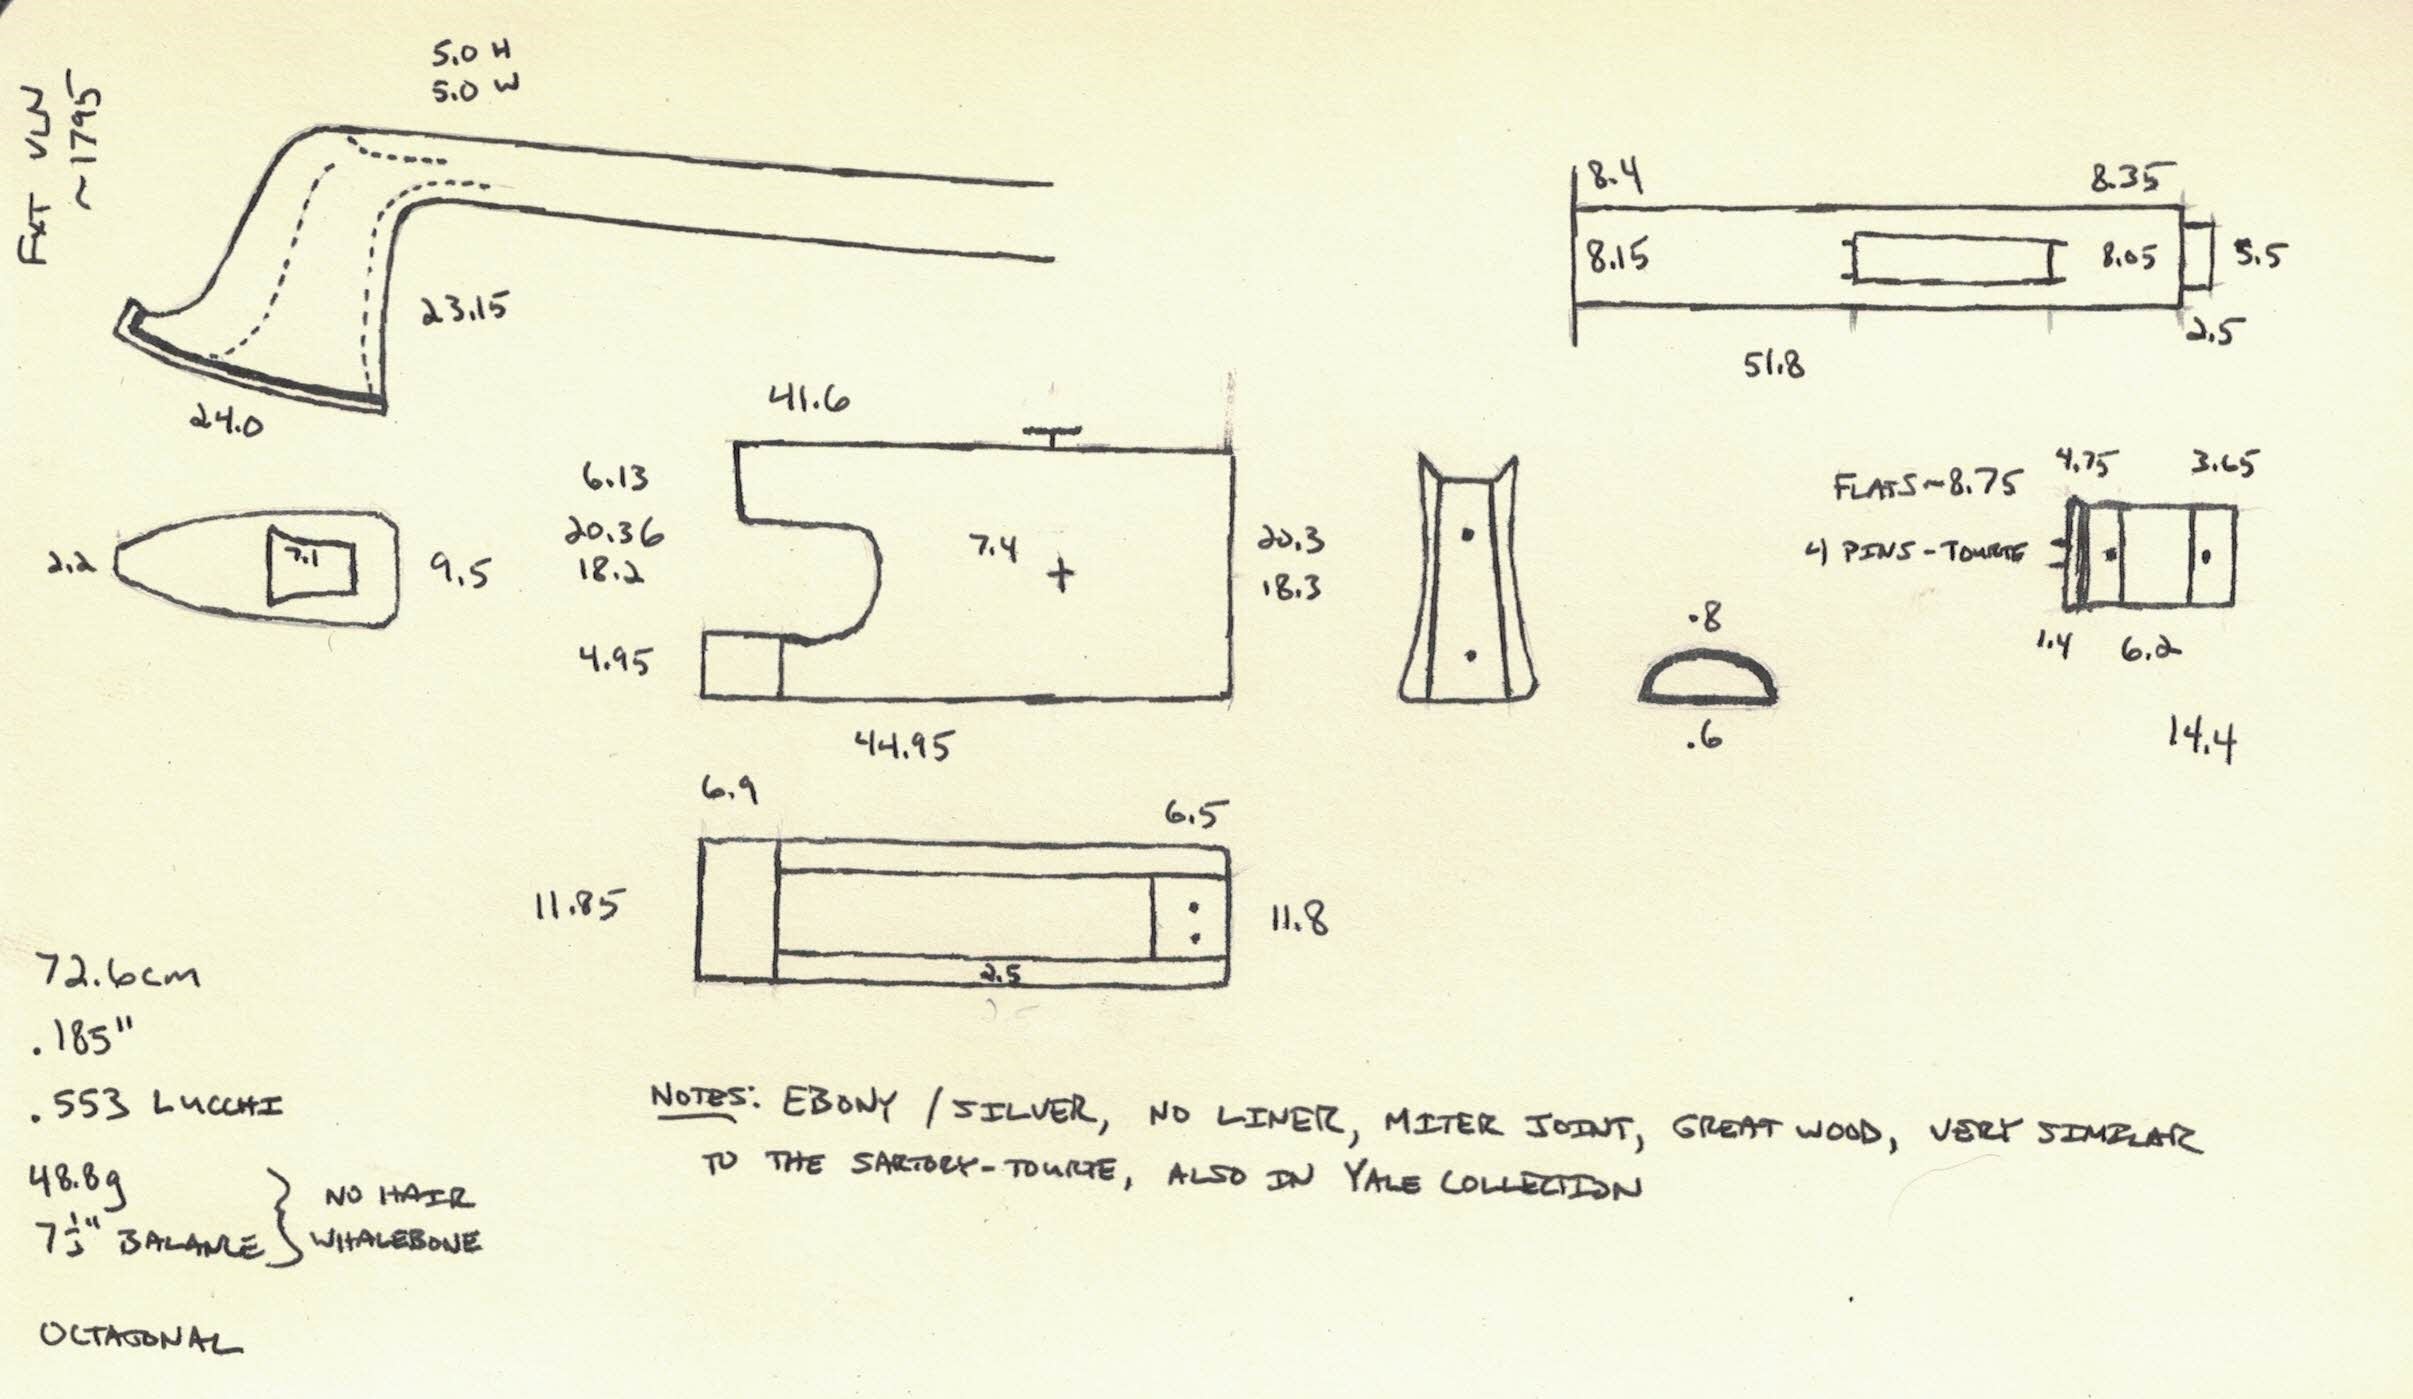 FXT VLN
~1795
5.0 H
5.0 W
23.15
24.0
8.4
8.35
8.15
8.05
5.5
2.5
51.8
41.6
6.13
20.36
18.2
4.95
7.4
20.3
18.3
44.95
2.2
7.1
9.5
FLATS ~8.75
4) PINS - TOURTE
4.75
3.65
1.4
6.2
14.4
.8
.6
6.9
6.5
11.85
11.8
2.5
72.6cm
.185"
.553 LUCCHI
48.8g
BALANCE
NO HAIR
WHALEBONE
OCTAGONAL
NOTES: EBONY / SILVER, NO LINER, MITER JOINT, GREAT WOOD, VERY SIMILAR
TO THE SARTORY-TOURTE, ALSO IN YALE COLLECTION